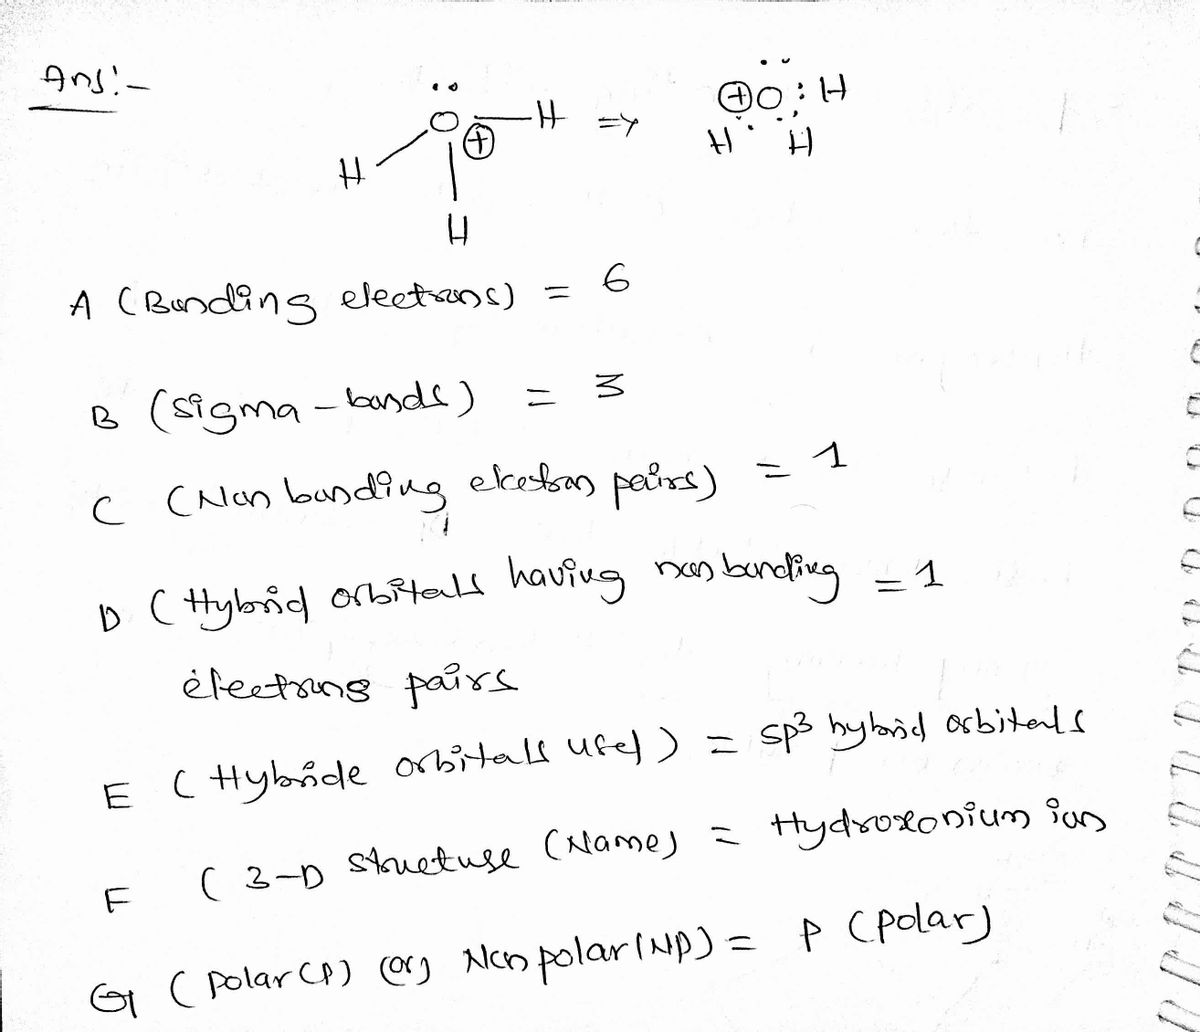 Ans:-
H O ⊕ H H => ⊕O:H H H
A (Bonding electrons) = 6
B (sigma-bonds) = 3
C (Non bonding electron pairs) = 1
D (Hybrid orbitals having non bonding = 1
electrons pairs
E (Hybride orbitals used) = sp³ hybrid orbitals
F (3-D structure (Name) = Hydroxonium ion
G (polar (P) (or) Non polar (NP) = P (polar)